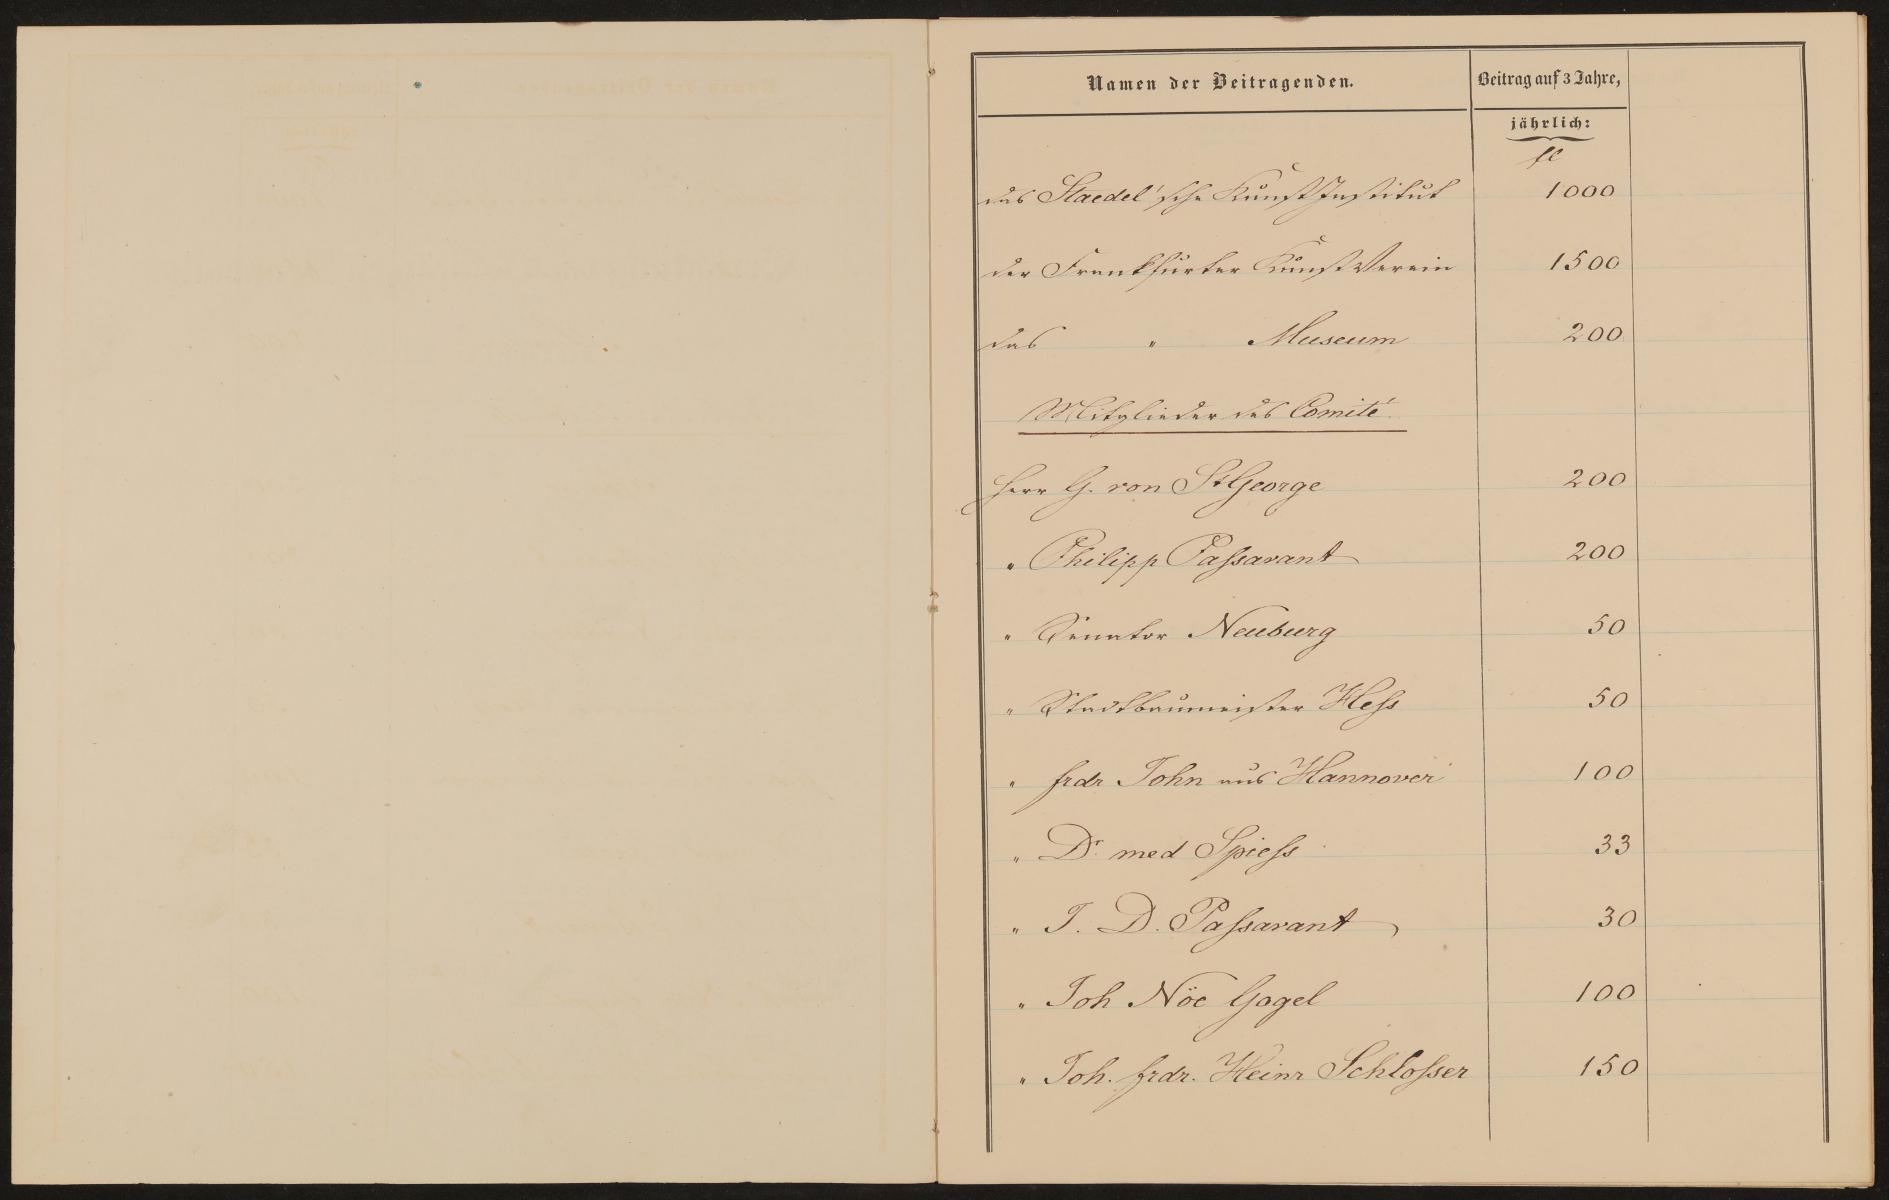 Namen der Beitragenden. Beitrag auf 3 Jahre,
jährlich:
fl
das Staedel'sche Kunst Institut 1000
der Frankfurter Kunst Verein 1500
das " Museum 200
Mitglieder des Comité
Herr G. von St George 200
" Philipp Paſsavant 200
" Senator Neuburg 50
" Stadtbaumeister Heſs 50
" frdr John aus Hannover 100
" Dr. med Spieſs 33
" J. D. Paſsavant 30
" Joh Nöe Gogel 100
" Joh. frdr. Heinr Schloſser 150